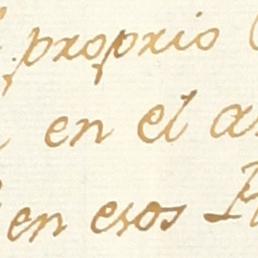 proprio
en el
en esos